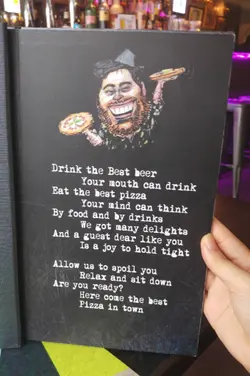 Drink the Best beer
Your mouth can drink
Eat the best pizza
Your mind can think
By food and by drinks
We got many delights
And a guest dear like you
Is a joy to hold tight
Allow us to spoil you
Relax and sit down
Are you ready?
Here come the best
Pizza in town